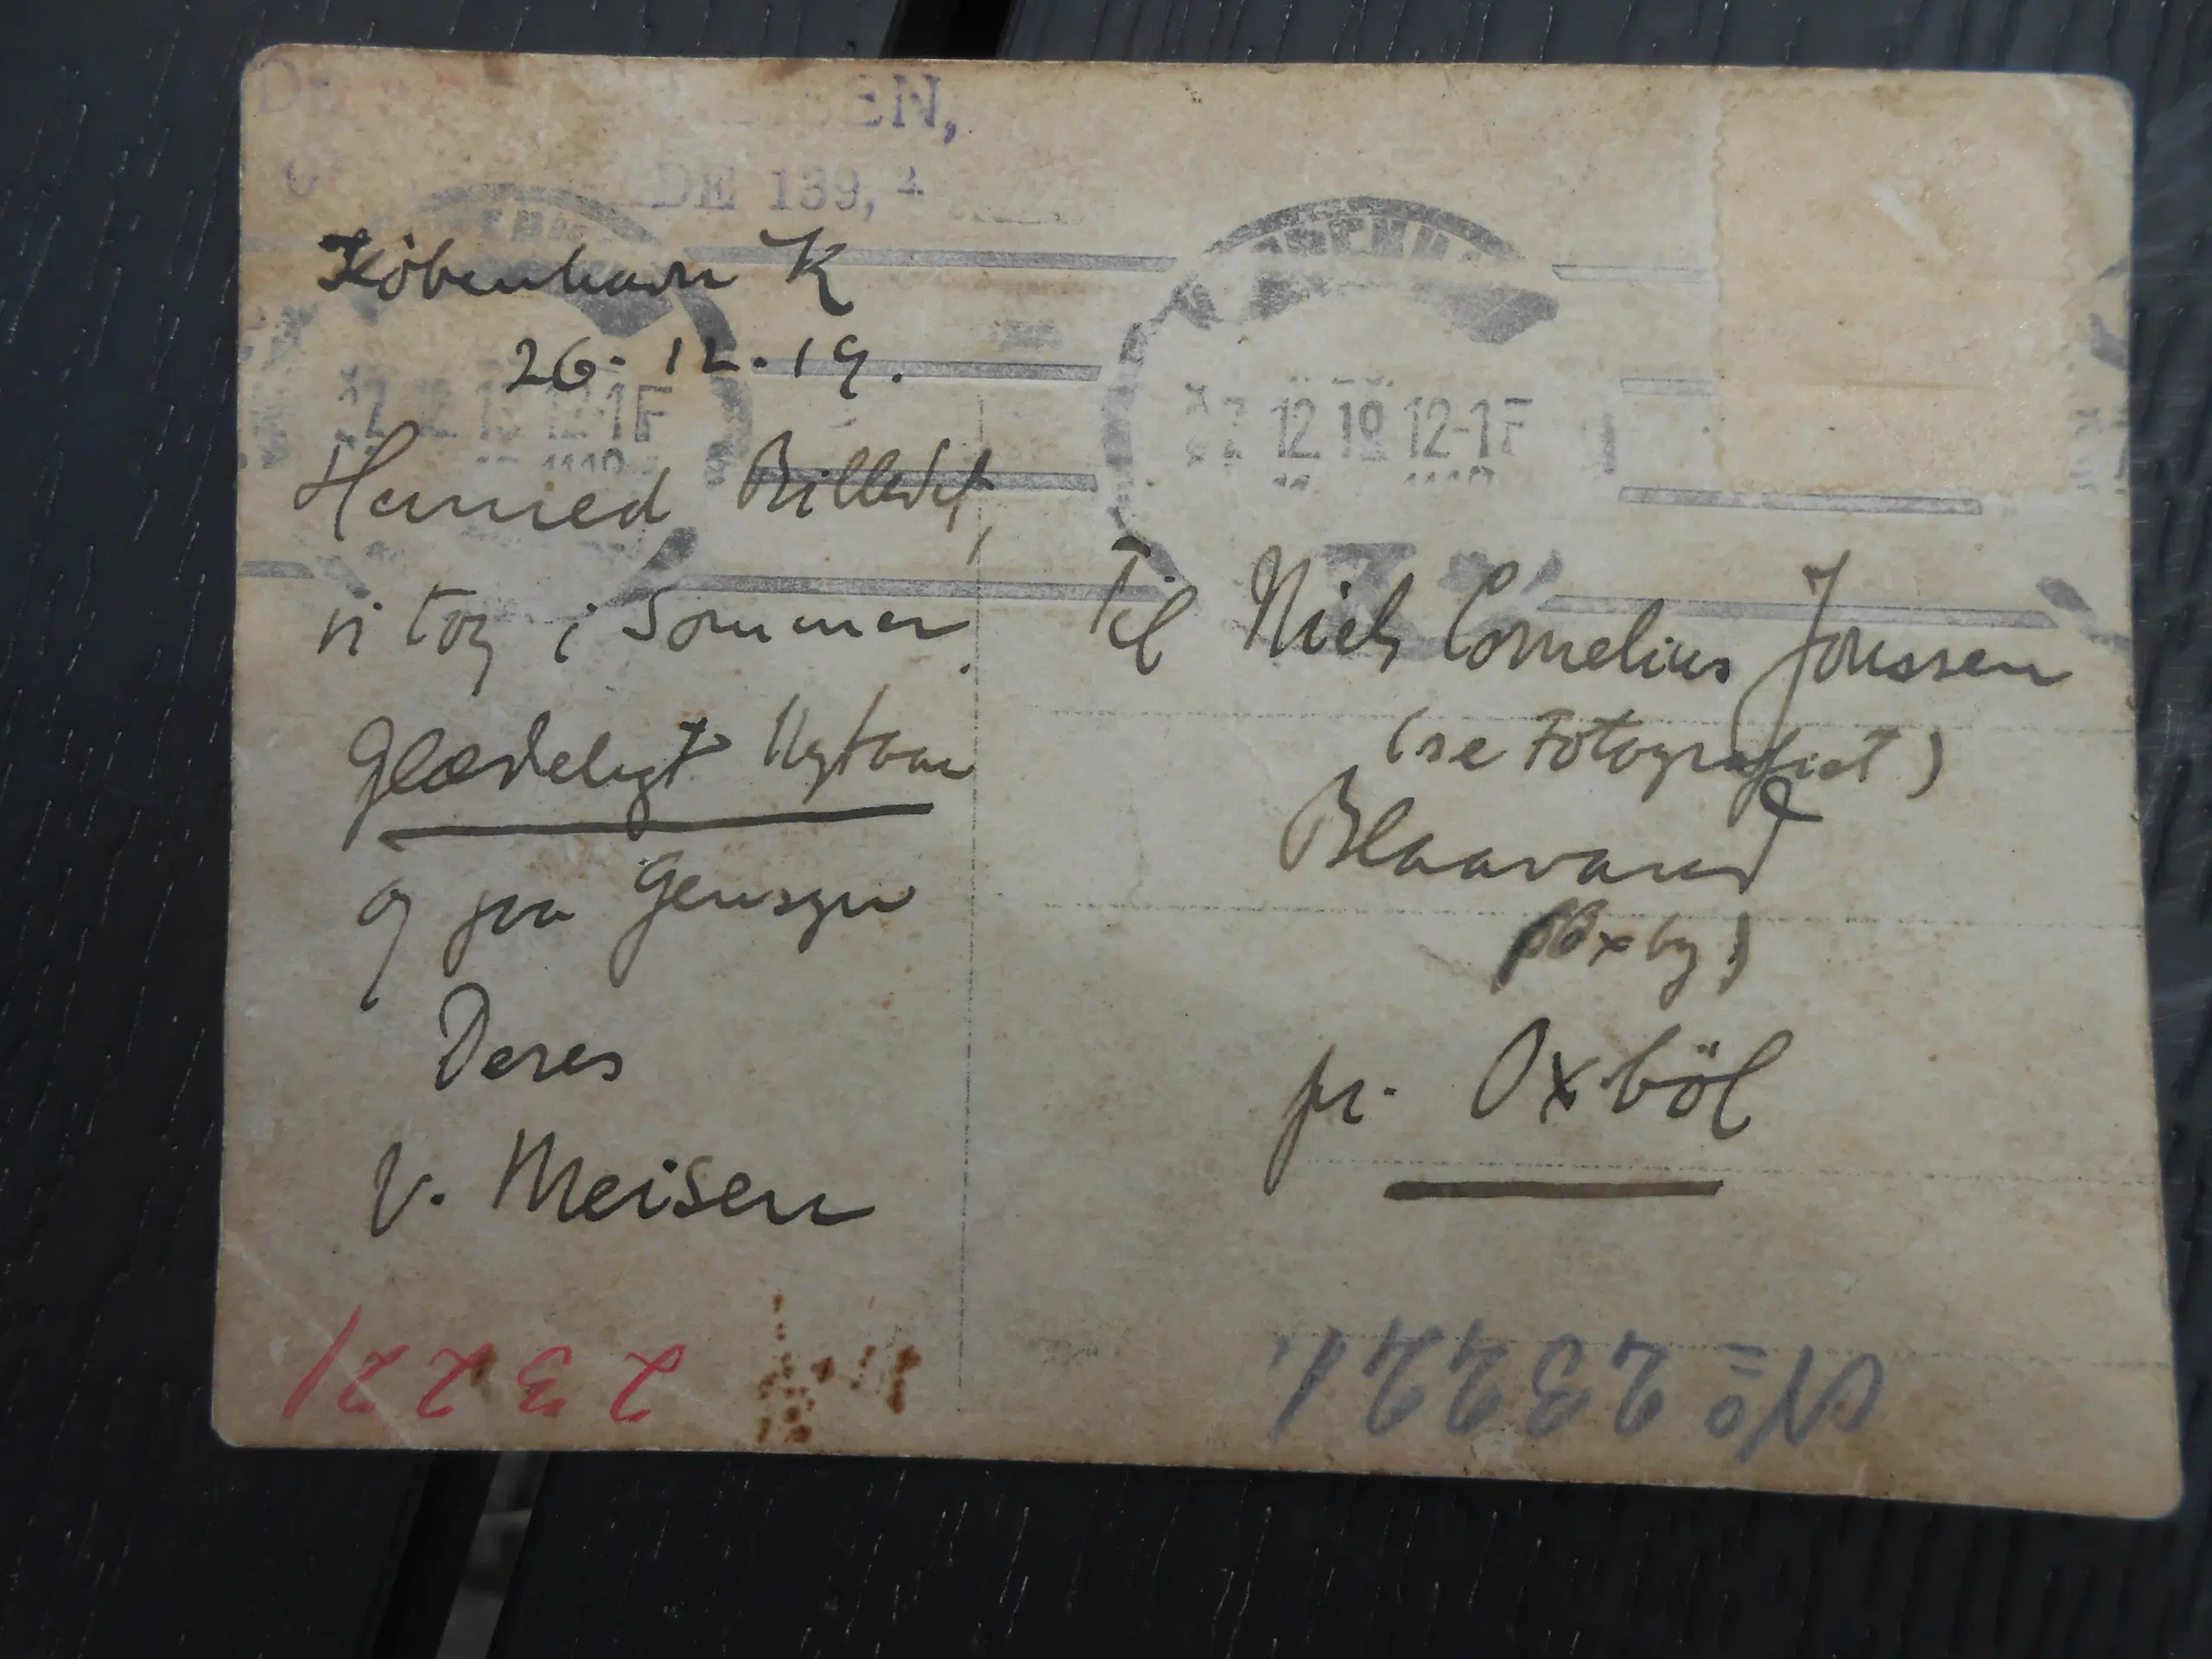 EN,
DE 139, 2.
København K
26.12.19.
Hermed Billedet,
vi tog i Sommer.
Glædeligt Nytaar
og paa Gensyn
Deres
V. Meisen
27 12 19 12-1F
Til Niels Cornelius Jonssen
(se Fotografiet)
Blaavand
(Oxby)
pr. Oxböl
23221
No 23221